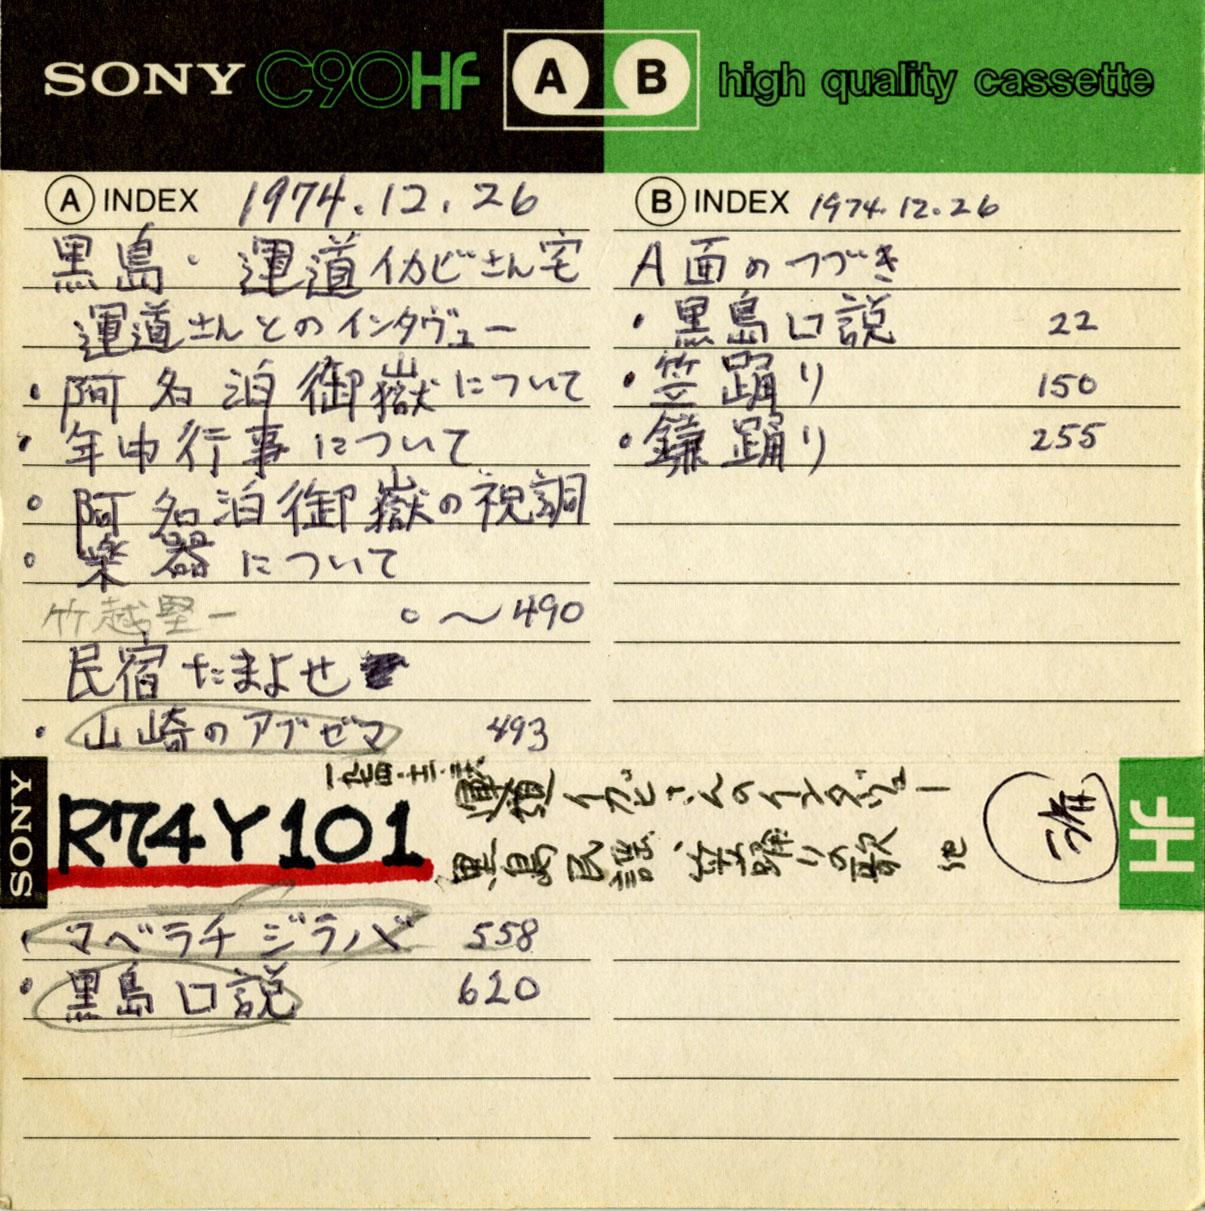 SONY C90HF A B high quality cassette
A INDEX 1974.12.26
黒島・運道イカビさん宅
運道さんとのインタヴュー
・阿名泊御嶽について
・年中行事について
○阿名泊御嶽の祝詞
○楽器について
竹越堅一 0〜490
民宿たまよせ
・山崎のアブゼマ 493
B INDEX 1974.12.26
A面のつづき
・黒島口説 22
・笠踊り 150
・鎌踊り 255
SONY
R74Y101
運道イカビさんのインタヴュー
黒島民謡 笠踊りの歌 他
済
HF
・マベラチジラバ 558
・黒島口説 620